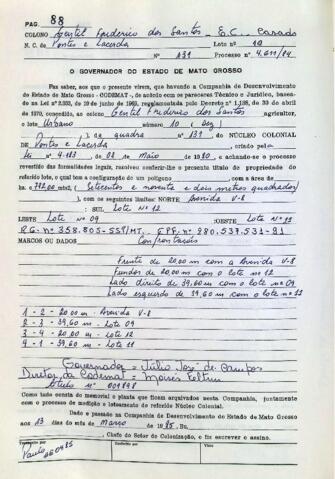 PAG. 88
COLONO Gentil Frederico dos Santos - E.C. Casado
N. C. de Pontes e Lacerda Lote nº 10
Nº 131 Processo nº 4.611/84
O GOVERNADOR DO ESTADO DE MATO GROSSO
Faz saber, aos que o presente virem, que havendo a Companhia de Desenvolvimento
do Estado de Mato Grosso - CODEMAT -, de acordo com os pareceres Técnico e Jurídico, basea-
do na Lei nº 2.333, de 19 de junho de 1963, regulamentada pelo Decreto nº 1.138, de 30 de abril
de 1970, concedido, ao colono Gentil Frederico dos Santos agricultor,
o lote Urbano número 10 (dez
), da quadra nº 131, do NÚCLEO COLONIAL
DE Pontes e Lacerda, criado pela
Lei nº 4.183 de 02 de Maio de 1980, e achando-se o processo
revestido das formalidades legais, resolveu conferir-lhe o presente título de propriedade
do referido lote, o qual tem a configuração de um polígono, com a área de
ha. 792,00 mts2, (Setecentos e noventa e dois metros quadrados
), com os seguintes limites: NORTE Avenida V-8
; SUL Lote Nº 12
LESTE Lote Nº 09 ; OESTE Lote Nº 11
R.G. nº 358.805-SSP/MT. CPF. nº 280.539.531-91
MARCOS OU DADOS Confrontações
Frente de 20,00 m com a Avenida V-8
Fundos de 20,00 m com o lote nº 12
Lado direito de 39,60 m com o lote nº 09
Lado esquerdo de 39,60 m com o lote nº 11
1 - 2 - 20,00 m - Avenida V-8
2 - 3 - 39,60 m - Lote 09
3 - 4 - 20,00 m - Lote 12
4 - 1 - 39,60 m - Lote 11
Governador = Júlio José de Campos
Diretor da Codemat = Moisés Feltrin
Título nº 001898
Como tudo consta do memorial e planta que ficam arquivados nesta Companhia, juntamente
com o processo de medição e loteamento do referido Núcleo Colonial.
Dado e passado na Companhia de Desenvolvimento do Estado de Mato Grosso
aos 13 dias do mês de Março de 1985. Eu,
, Chefe do Setor de Colonização, o fiz escrever e assino.
Paulo